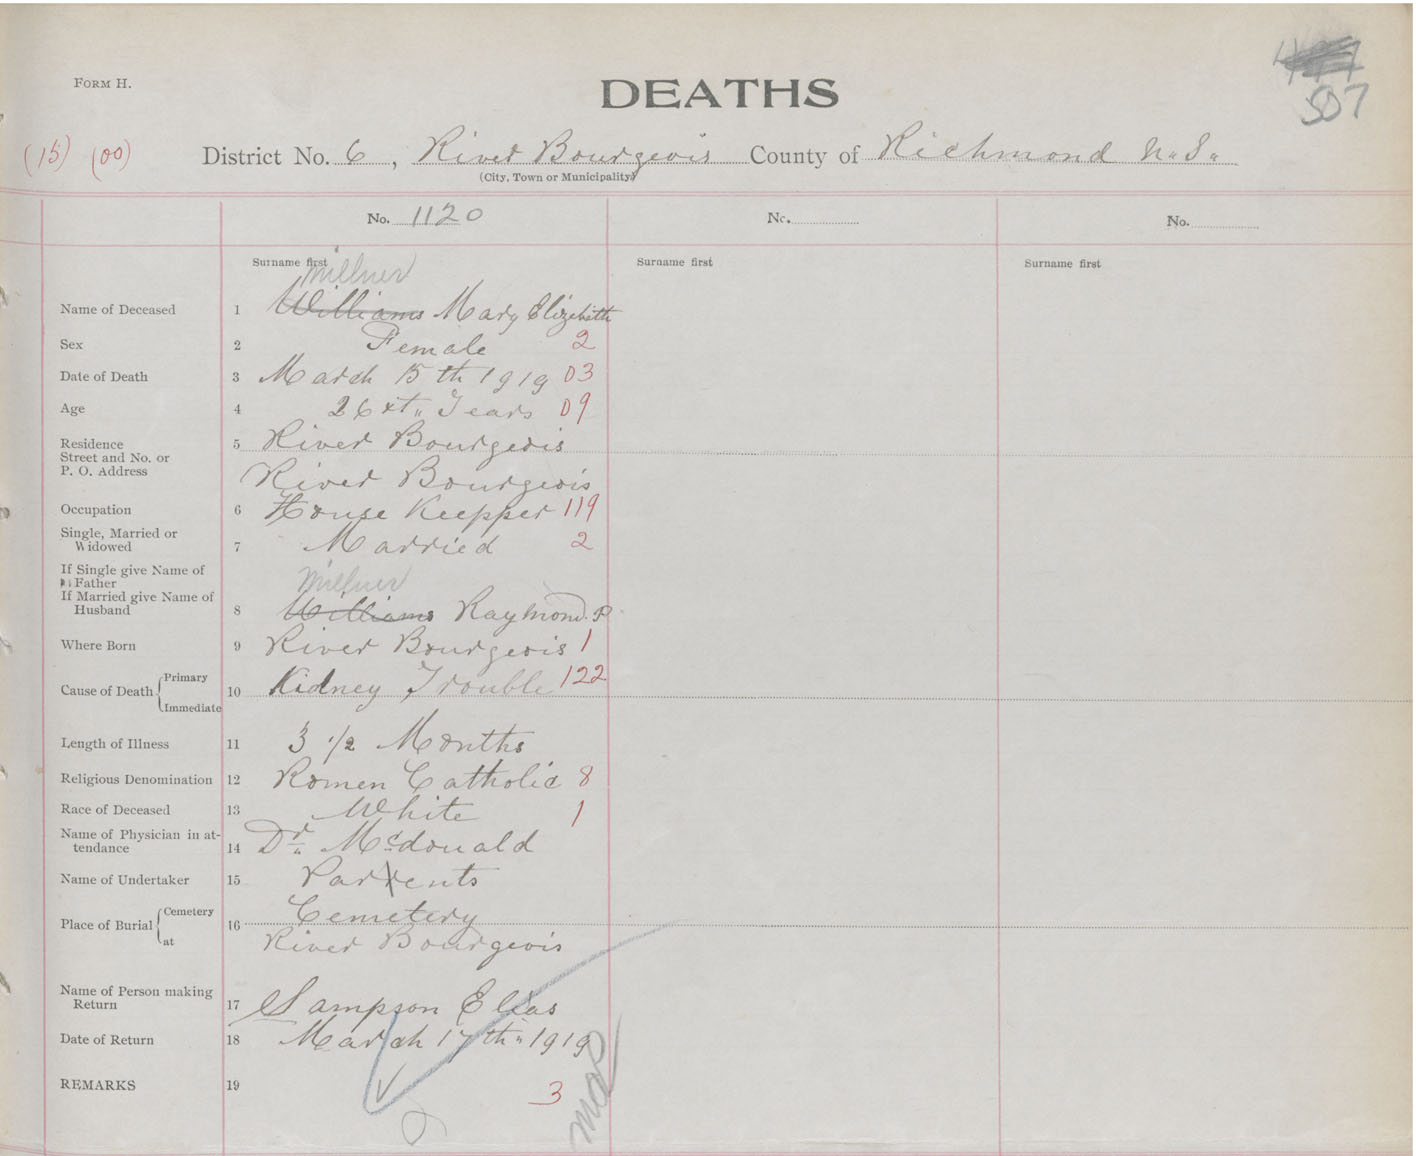 FORM H.
DEATHS
507
(15) (00) District No. 6, River Bourgeois County of Richmond N.S.
(City, Town or Municipality)
No. 1120 No. No.
Surname first Surname first Surname first
Millner
Name of Deceased 1 Williams Mary Elizebitth
Sex 2 Female 2
Date of Death 3 March 15th 1919 03
Age 4 26xt Years 09
Residence 5 River Bourgeois
Street and No. or
P. O. Address River Bourgeois
Occupation 6 House Keepper 119
Single, Married or
Widowed 7 Married 2
If Single give Name of
Father Millner
If Married give Name of
Husband 8 Williams Raymond. P
Where Born 9 River Bourgeois 1
Cause of Death Primary 10 Kidney Trouble 122
Immediate
Length of Illness 11 3 1/2 Months
Religious Denomination 12 Romen Catholic 8
Race of Deceased 13 White 1
Name of Physician in at-
tendance 14 Dr. Mcdonald
Name of Undertaker 15 Parents
Place of Burial Cemetery 16 Cemetery
at River Bourgeois
Name of Person making
Return 17 Sampson Elias
Date of Return 18 March 17th 1919
REMARKS 19 3